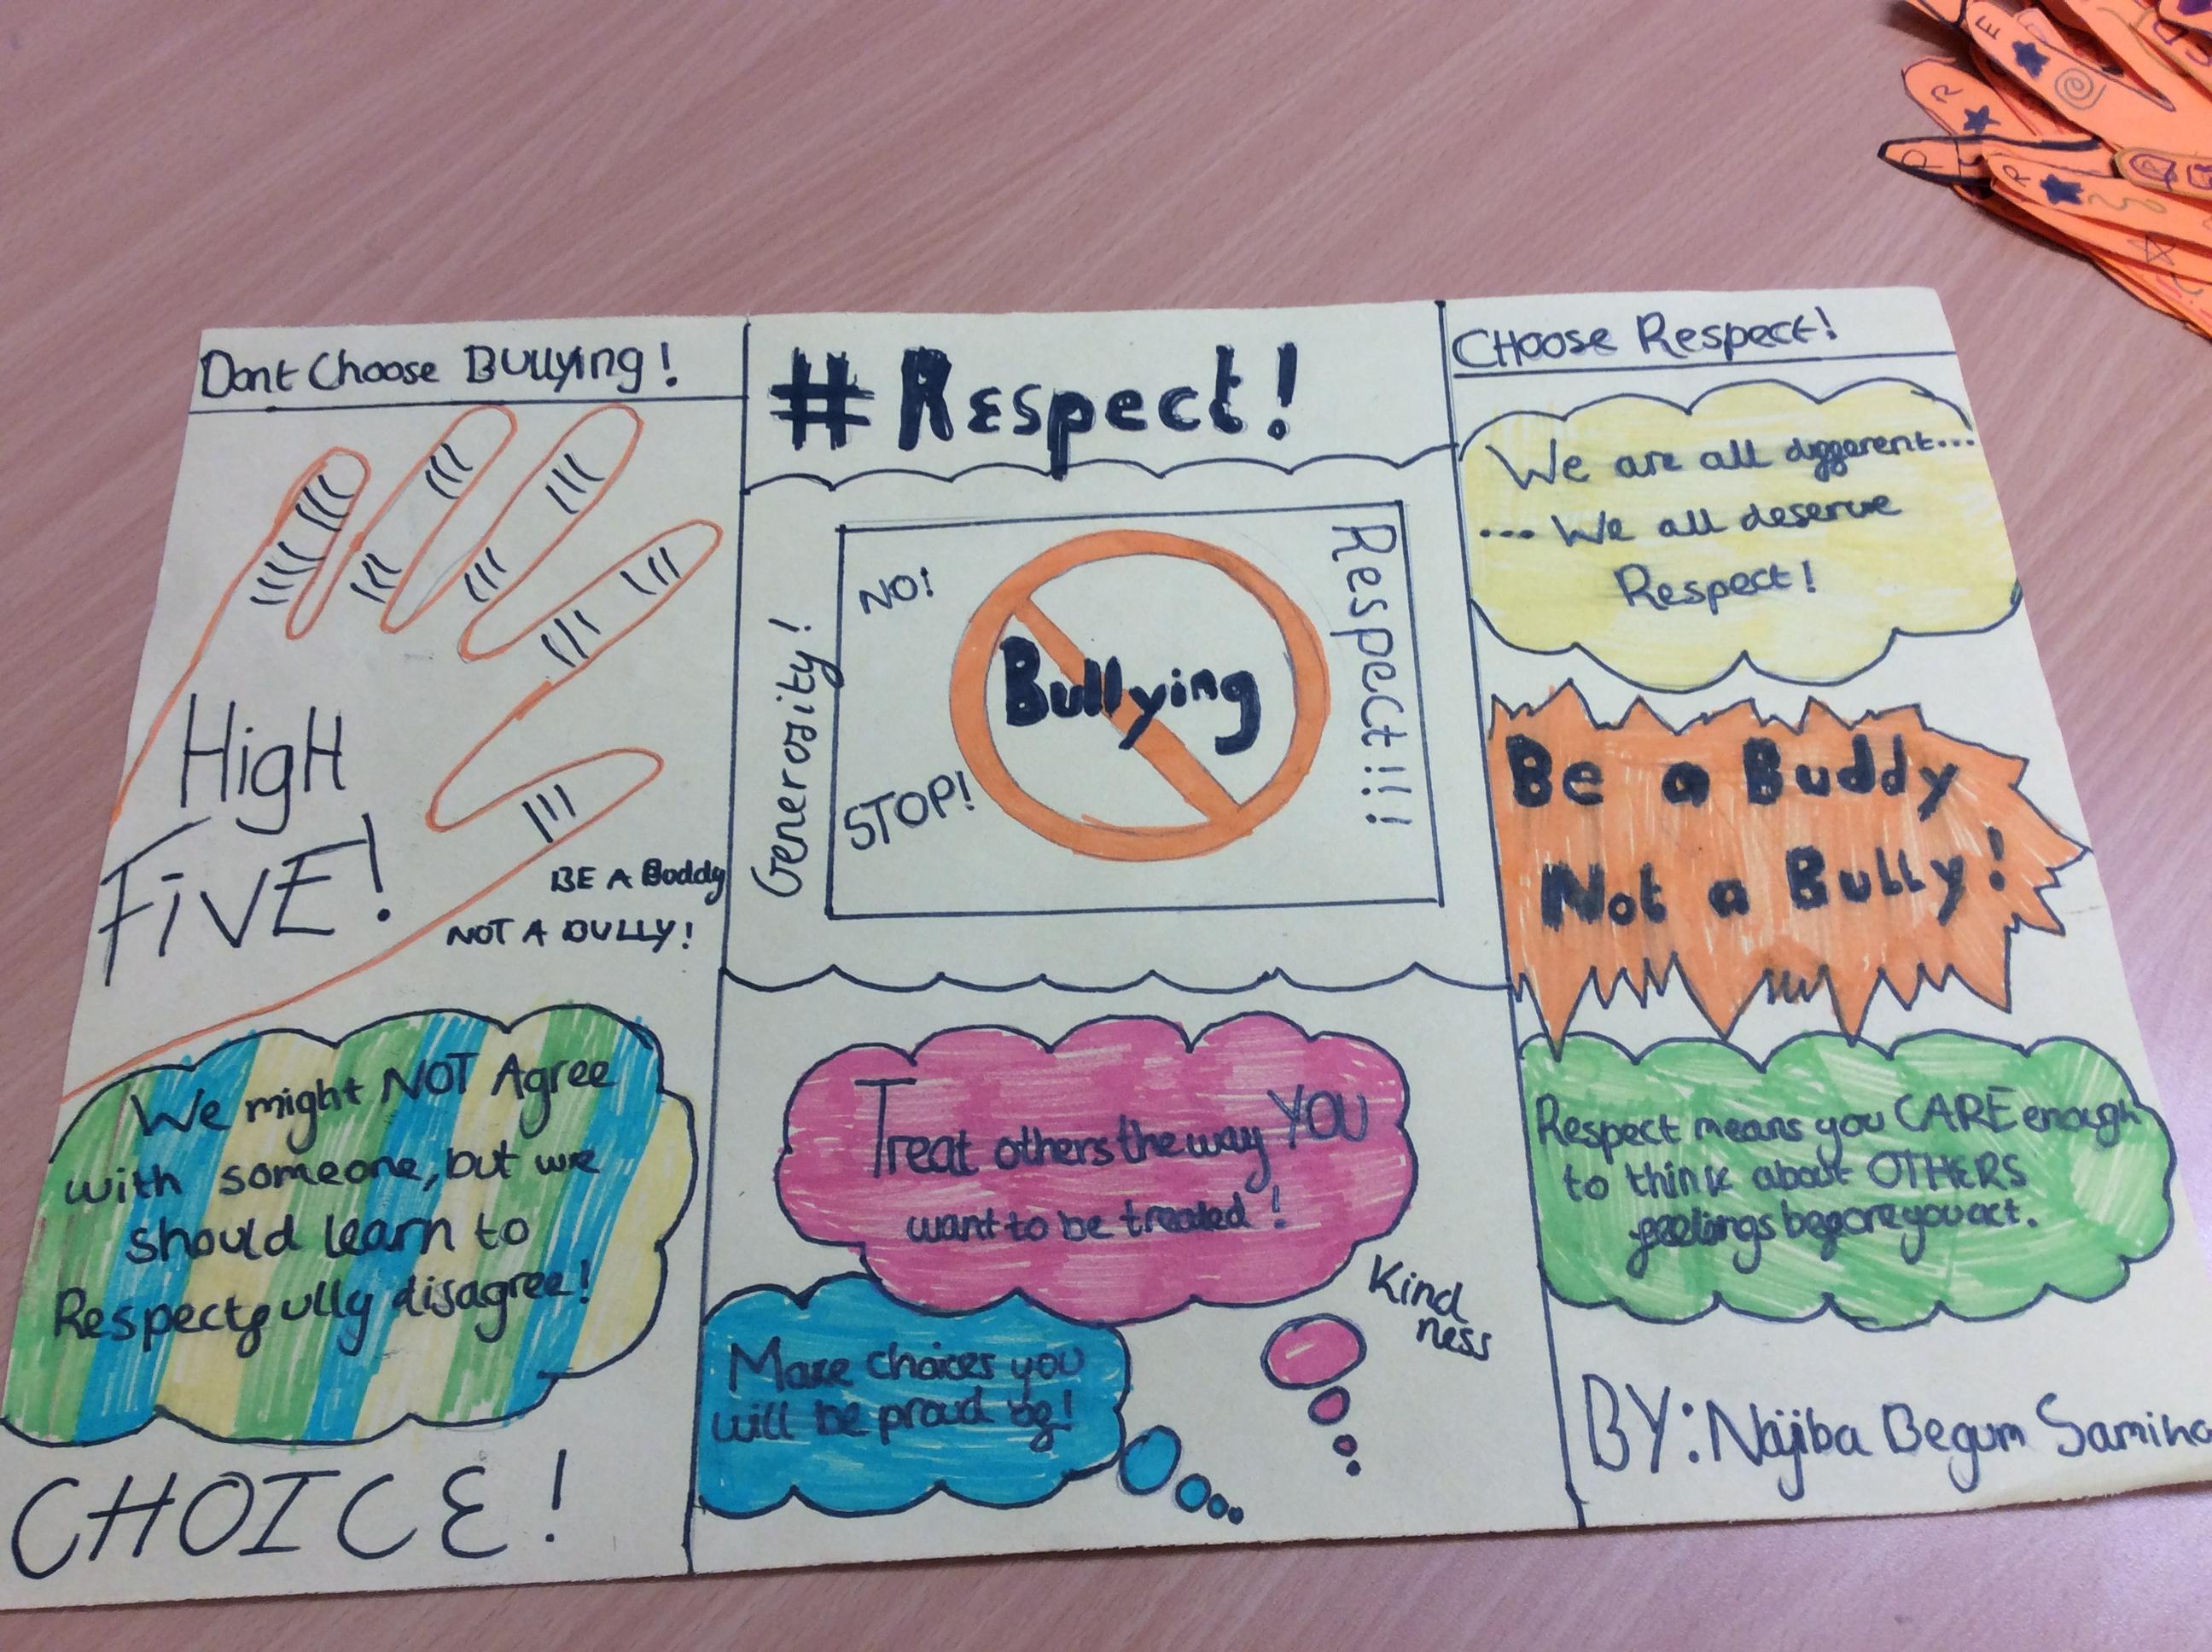 Dont Choose Bullying!
High
FiVE!
BE A Buddy
NOT A BULLY!
We might NOT Agree
with someone, but we
should learn to
Respectfully disagree!
CHOICE!
#Respect!
Generosity!
NO!
STOP!
Bullying
Respect!!!
Treat others the way YOU
want to be treated!
Kind
ness
Make choices you
will be proud of!
CHoose Respect!
We are all different...
... We all deserve
Respect!
Be a Buddy
Not a Bully!
Respect means you CARE enough
to think about OTHERS
feelings before you act.
BY: Najiba Begum Samiha